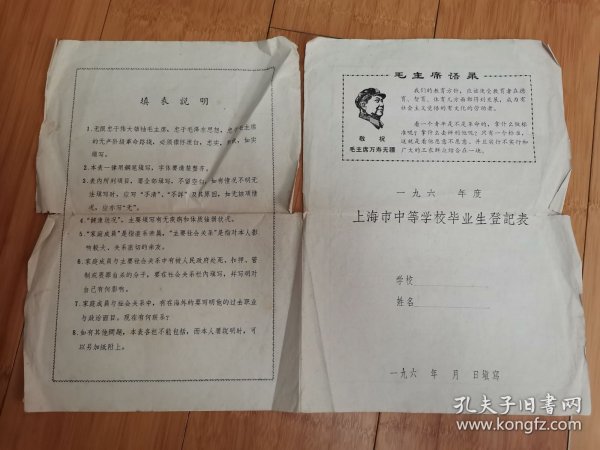 填表説明
1.无限忠于伟大领袖毛主席,忠于毛泽东思想,忠于毛主席
的无产阶级革命路线,必须襟怀坦白,忠实,
实填写。
2.本表一律用钢笔填写,字体要清楚整齐。
3.表内所列项目,要全部填写,不留空白,如有情况不明无
法填写时,应写"不清"、"不詳"及其原因,如无該项情
况,应亦写"无"。
4."健康状况",主要填写有无疾病和体质强弱状况。
5."家庭成員"是指直系亲属,"主要社会关系"是指对本人影
响較大、关系密切的亲友。
6.家庭成員与主要社会关系中有被人民政府处死、扣押、管
制或畏罪自杀的分子,要在社会关系栏内填写,并写明对
自己有何影响。
7.家庭成員与社会关系中,有在海外的要写明他的过去职业
与政治面目。现在有何联系?
8.如有其他問題,本表各栏不能包括,而本人要説明时,可
以另加紙附上。
毛主席语录
我们的教育方针,应该使受教育者在德
育、智育、体育几方面都得到发展,成为有
社会主义觉悟的有文化的劳动者。
看一个青年是不是革命的,拿什么做标
准呢?拿什么去辨别他呢?只有一个标准,
这就是看他愿意不愿意、并且实行不实行和
广大的工农群众结合在一块。
敬祝
毛主席万寿无疆
一九六 年度
上海市中等学校毕业生登記表
学校
姓名
一九六 年 月 日填写
孔夫子旧书网
www.kongfz.com